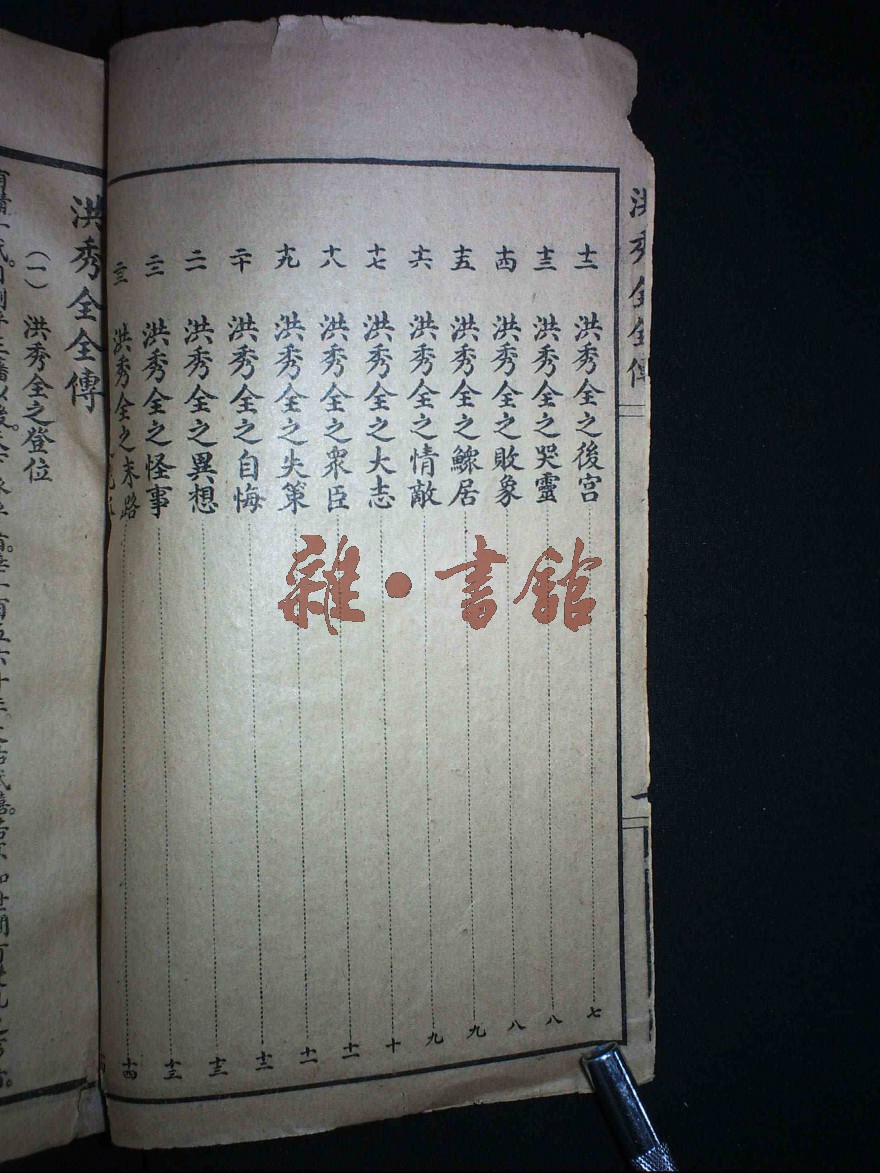 洪秀全全傳
十二 洪秀全之後宮 七
十三 洪秀全之哭靈 八
十四 洪秀全之敗象 八
十五 洪秀全之鰥居 九
十六 洪秀全之情敵 九
十七 洪秀全之大志 十
十八 洪秀全之眾臣 十一
十九 洪秀全之失策 十一
二十 洪秀全之自悔 十二
二一 洪秀全之異想 十三
二二 洪秀全之怪事 十三
二三 洪秀全之末路 十四
雜·書館
洪秀全全傳
（一） 洪秀全之登位